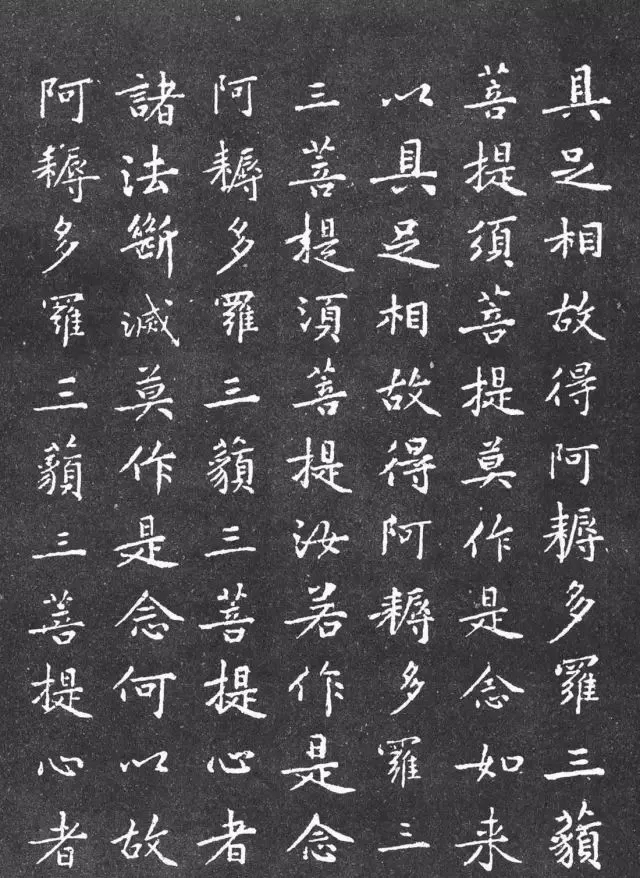 具足相故得阿耨多羅三藐
菩提須菩提莫作是念如来
以具足相故得阿耨多羅三
三菩提須菩提汝若作是念
阿耨多羅三藐三菩提心者
諸法斷滅莫作是念何以故
阿耨多羅三藐三菩提心者